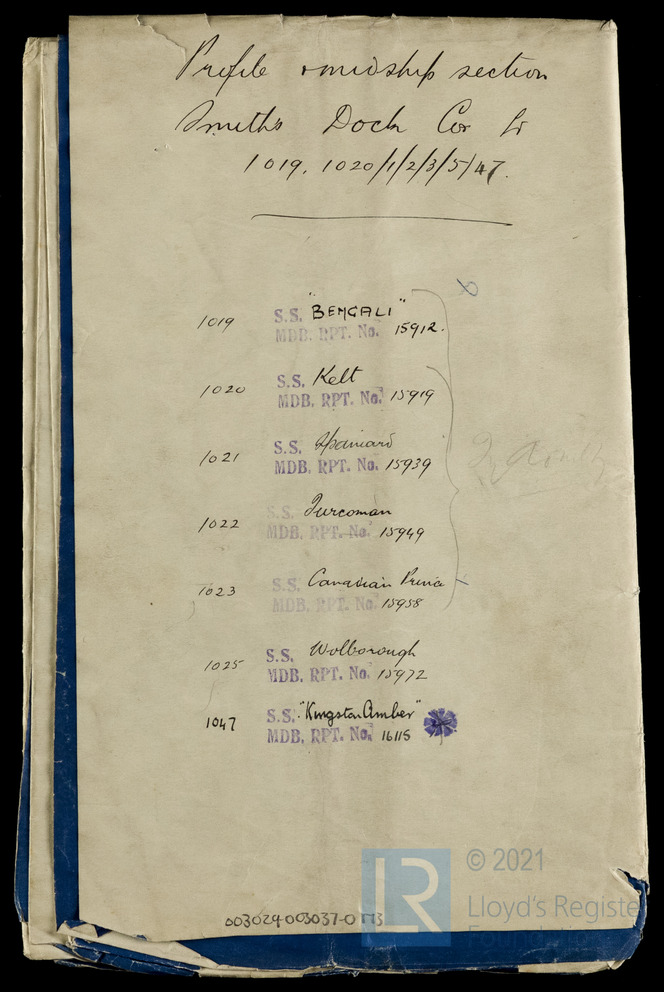 Profile & midship section
Smith's Dock Co Ld
1019, 1020/1/2/3/5/47.
1019 S.S. "BENGALI"
MDB. RPT. No. 15912.
1020 S.S. Kelt
MDB. RPT. No. 15919
1021 S.S. Spaniard
MDB. RPT. No. 15939
1022 S.S. Turcoman
MDB. RPT. No. 15949
1023 S.S. Canadian Prince
MDB. RPT. No. 15958
1025 S.S. Wolborough
MDB. RPT. No. 15972
1047 S.S. "Kingston Amber"
MDB. RPT. No. 16115
003024-003037-0
LR
© 2021
Lloyd's Registe
Foundation